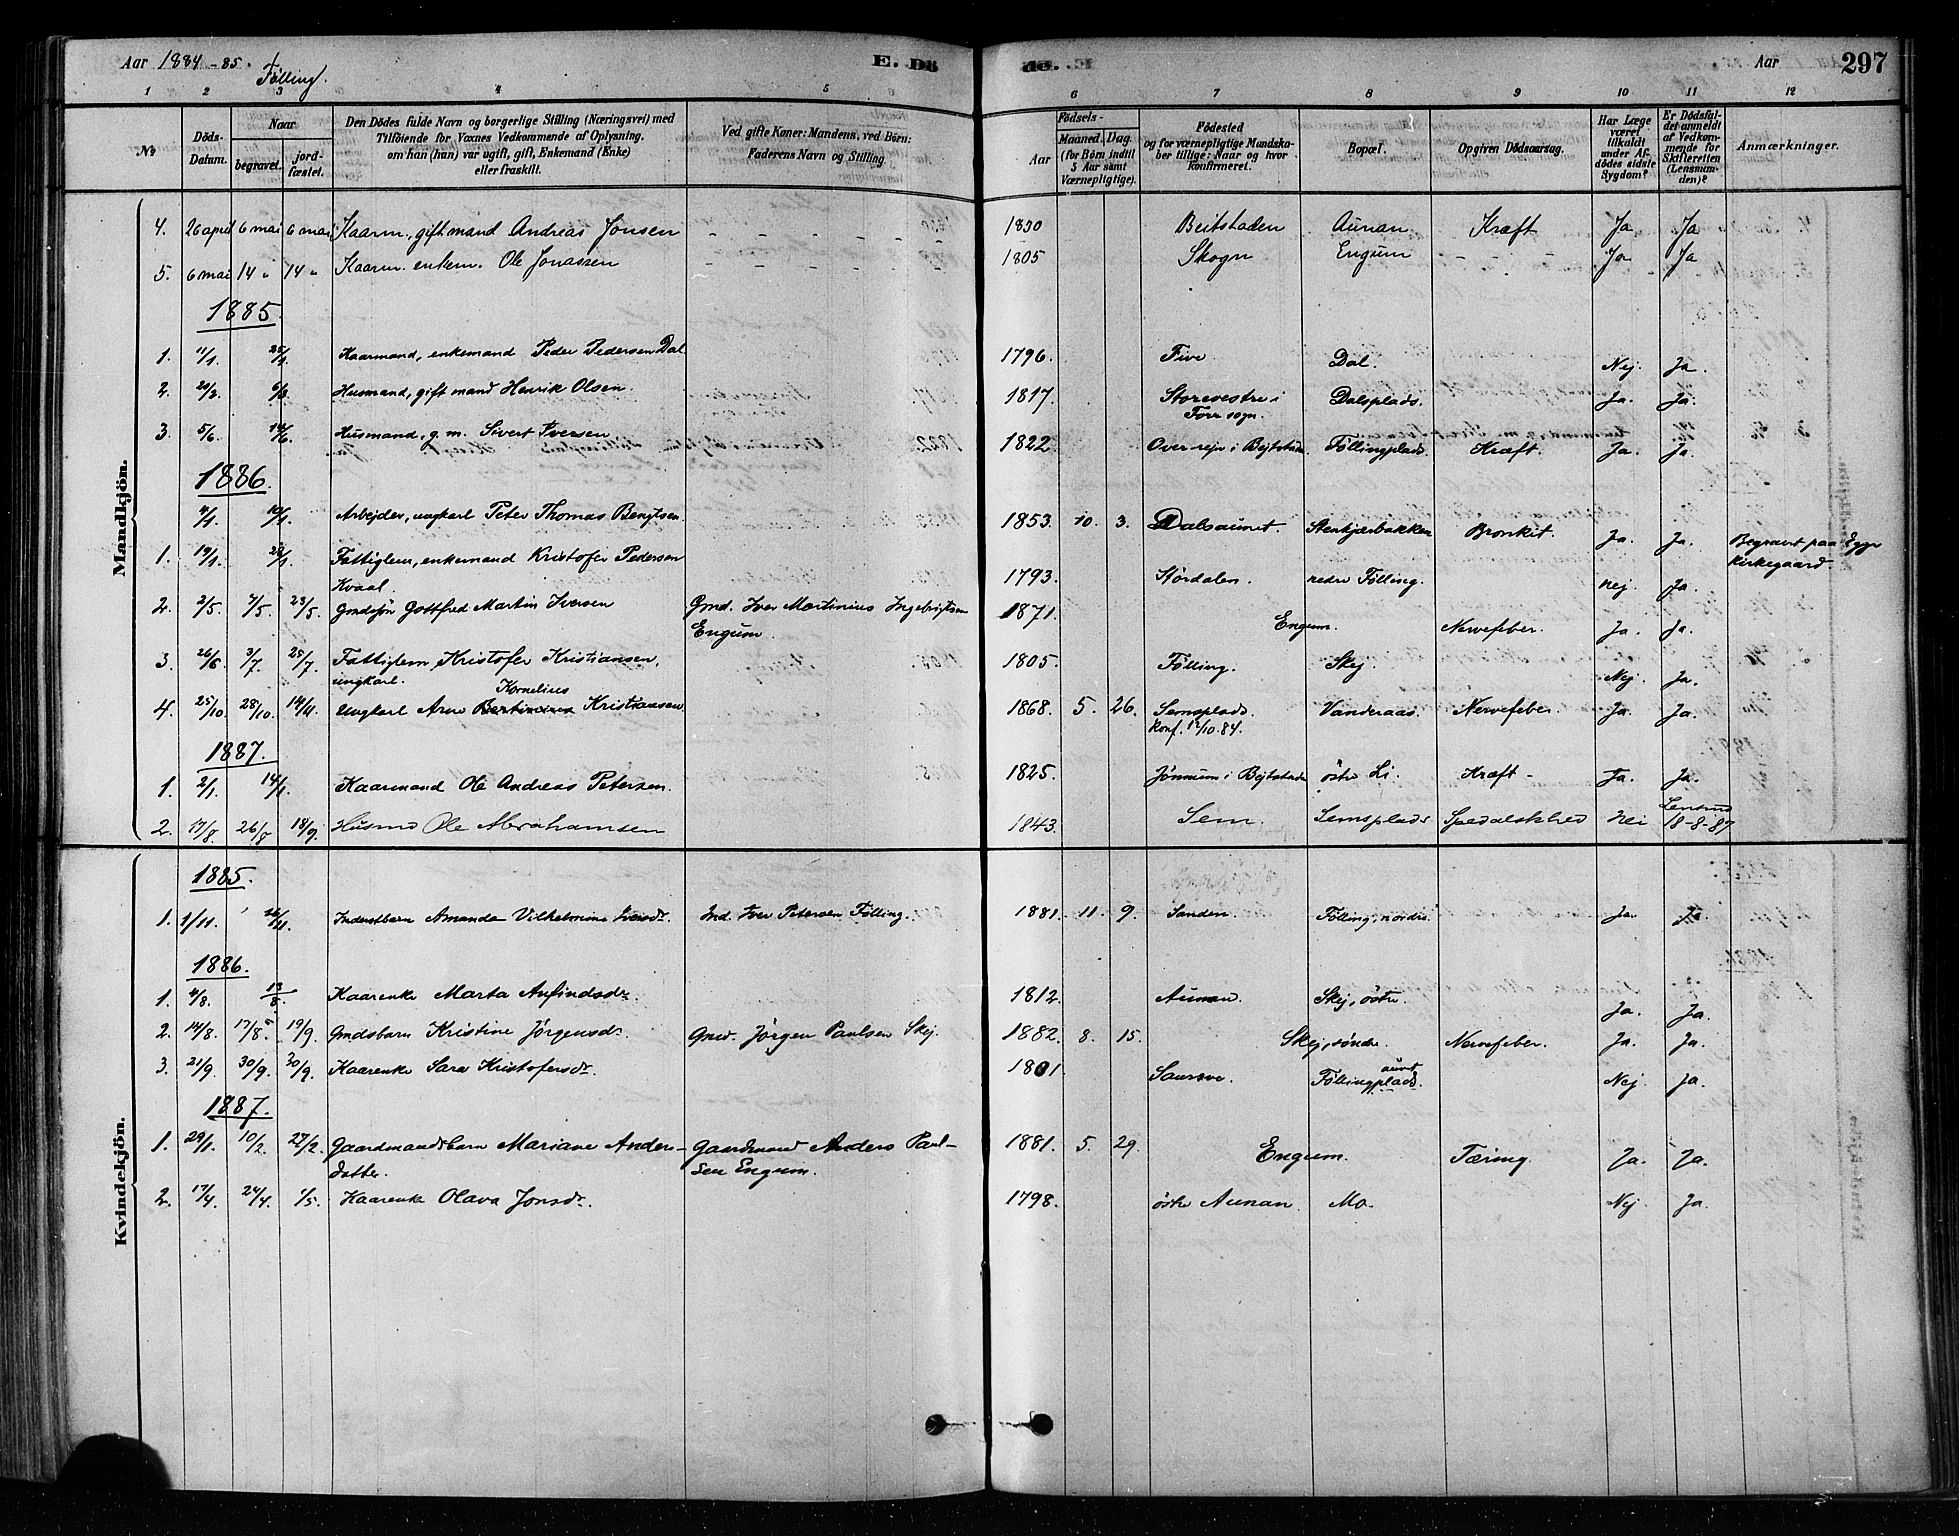 Aar 1884-85. Følling. E. Dö de. E. Aar 297
1 2 3 4 5 6 7 8 9 10 11 12
No
Döds-Datum.
Naar
begravet.
jordfæstet.
Den Dödes fulde Navn og borgerlige Stilling (Næringsvei) med
Tilföiende for Voxnes Vedkommende af Oplysning,
om han (hun) var ugift, gift, Enkemand (Enke)
eller fraskilt.
Ved gifte Koner: Mandens, ved Börn:
Faderens Navn og Stilling.
Födsels-
Aar
Maaned. Dag.
(for Börn indtil
5 Aar samt
Værnepligtige).
Födested
og for værnepligtige Mandska-
ber tillige: Naar og hvor
konfirmeret.
Bopæl.
Opgiven Dödsaarsag.
Har Læge
været
tilkaldt
under Af-
dödes sidste
Sygdom?
Er Dödsfal-
det anmeldt
af Vedkom-
mende for
Skifteretten
(Lensman-
den)?
Anmærkninger.
Mandkjön.
4. 26 april 6 mai 6 mai Kaarm., gift mand Andreas Jonsen - - - - - 1830 Beitstaden Aunan Kræft Ja Ja
5. 6 mai 14 " 14 " Kaarm. enkem. Ole Jonassen - - - - - 1805 Skogn Engum - - - Ja Ja
1885.
1. 11/1. 25/1. Kaarmand, enkemand Peder Pedersen Dal. 1796. Five Dal. Nej. Ja.
2. 20/2. 6/3. Husmand, gift mand Henrik Olsen. 1817. Storevestre i Dalsplads. Ja. Ja.
Forr sogn.
3. 5/6. 14/6. Husmand, g. m. Sivert Iversen 1822 Overrejn i Bejtstad. Föllingplads. Kræft. Ja. Ja.
1886.
4/1. 10/1. Arbejder, ungkarl Peter Thomas Bengtsen. 1853. 10. 3. Dalsaunet. Stenkjærbakken Bronkit. Ja. Ja. Begravet paa Egge
kirkegaard.
1. 19/1. 28/1. Fattiglem, enkemand Kristofer Pedersen 1793. Stördalen. nedre Fölling. nej. Ja.
Kvaal.
2. 2/5. 7/5. 23/5. Gmdssön Gottfred Martin Iversen Gmd. Iver Martinius Ingebrigtsen 1871. Engum. Nervefeber. Ja. Ja.
Engum.
3. 26/6. 3/7. 25/7. Fattiglem, Kristofer Kristiansen, 1805. Fölling. Skej. Nej. Ja.
ungkarl.
Kornelius
4. 25/10. 28/10. 14/11. Ungkarl Arne Bertinius Kristiansen 1868. 5. 26. Semsplads. Vanderaas. Nervefeber. Ja. Ja.
Konf. 12/10.84.
1887.
1. 2/1. 14/1. Kaarmand Ole Andreas Petersen. 1825. Jönnum i Bejtstad östre Li. Kræft - Ja. Ja.
2. 17/8. 26/8 18/9. Husmd Ole Abrahamsen 1843. Sem. Semsplads Spedalskhed Nei Lensmd
18-8-87
Kvindekjön.
1885.
1. 1/11. 26/11. Inderstbarn Amanda Vilhelmine Iversdr. Ind. Iver Petersen Fölling. 1881. 11. 9. Sanden. Fölling, nordre. Ja. Ja.
1886.
1. 4/8. 13/8. Kaarenke Marta Anfindsdr. 1812. Aunan. Skej, östre. Ja. Ja.
2. 14/8. 17/8 19/9. Gmdsbarn Kristine Jörgensdr. Gmd. Jörgen Paulsen Skej. 1882. 8. 15. Skej, söndre. Nervefeber. Ja. Ja.
3. 21/9. 30/9. 30/9. Kaarenke Sara Kristofersdr. 1801. Saursve. Föllingplads. Nej. Ja.
1887.
1. 29/1. 10/2. 27/2. Gaardmandsbarn Mariane Anders- Gaardmand Anders Paul- 1881. 5. 29. Engum. Tæring Ja. Ja.
datter. sen Engum.
2. 17/4. 24/4. 1/5. Kaarenke Olava Jonsdr. 1798. östre Aunan. Mo. Nej. Ja.